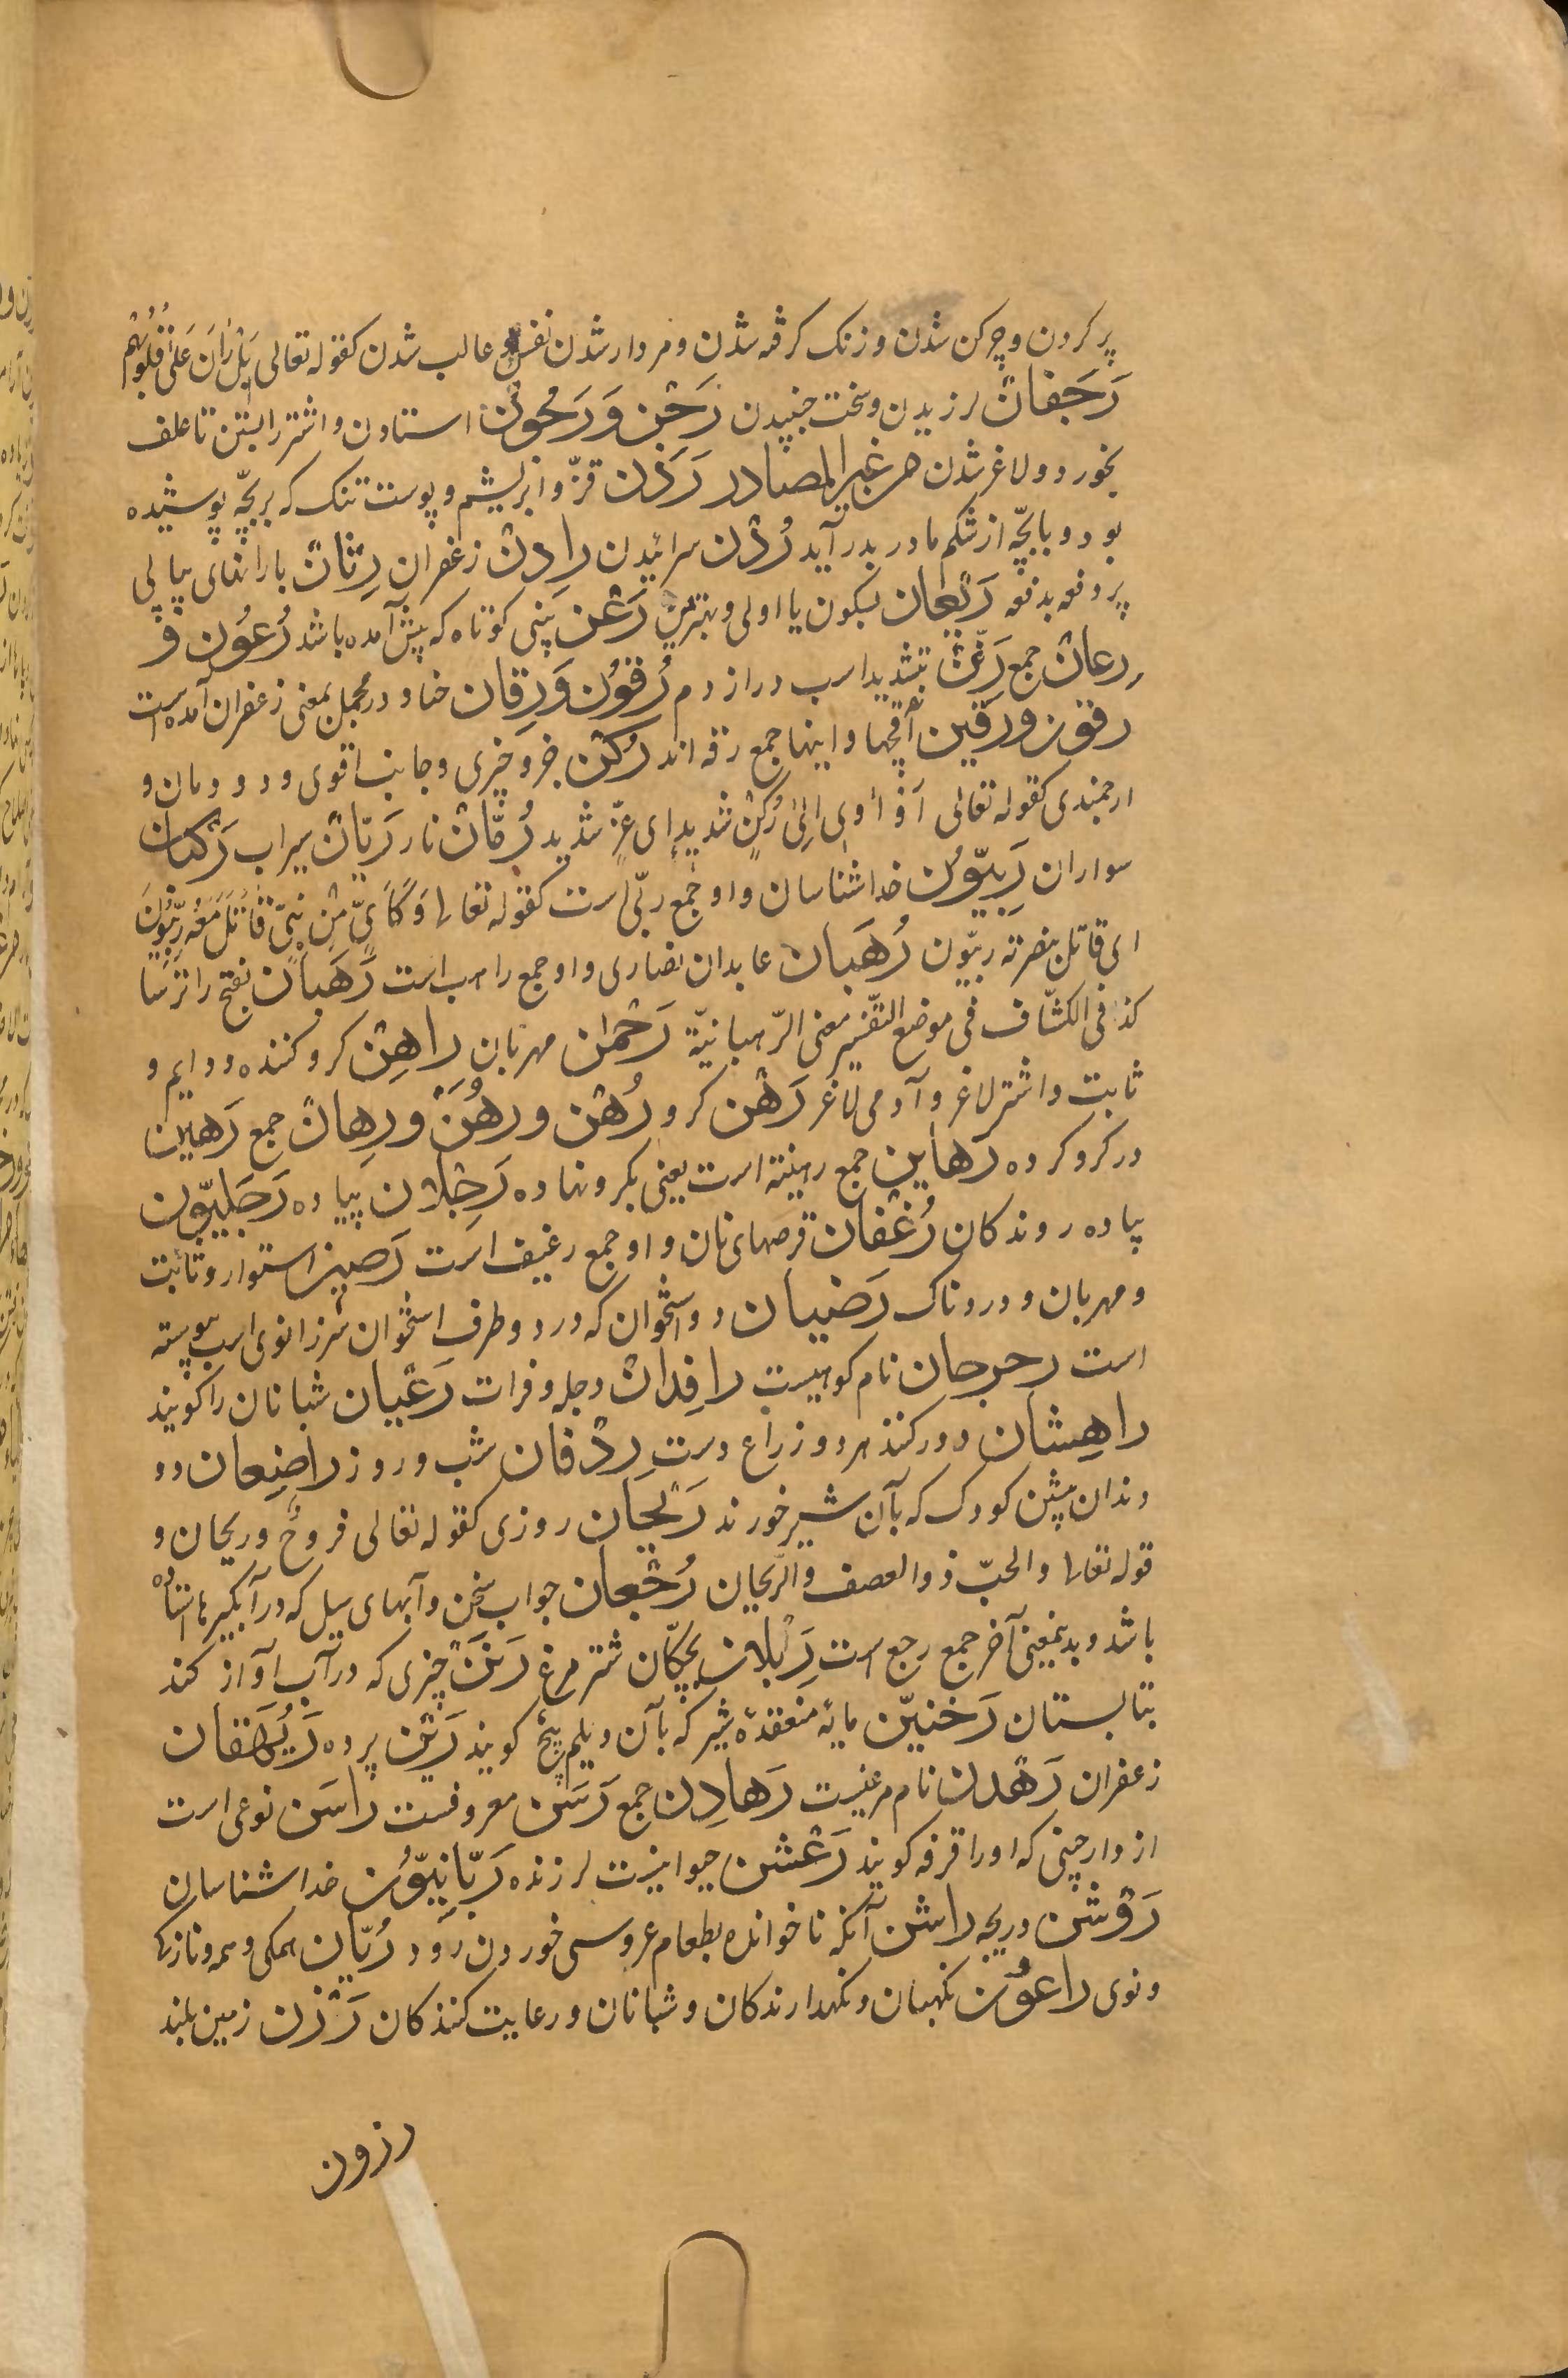 پر کردن و چرکن شدن و زنک کرفته شدن و مردار شدن نفس و غالب شدن کقوله تعالی بَلْ رَانَ عَلٰی قُلُوبِهِم
رَجَفان لرزیدن و سخت جنبیدن رَجْن وَ رَجُون استادن و اشتر را بستن تا علف
بخورد و لاغر شدن من غیر المصادر رَدَن قزّ و ابریشم و پوست تنک که بر بچّه پوشیده
بود و با بچّه از شکم مادر بدر آید رُدْن سرائیدن رادِن زعفران رِثان بارانهای پیاپی
پر دفعه بدفعه رَیْعان بسکون یا اولی و بهترین رَعْن بینی کوتاه که پیش آمده باشد رُعُون و
رِعان جمع رِفَنّ بتشدید اسب دراز دم رُقُون وَ رِقان حنا و در مجمل بمعنی زعفران آمده است
رقون و رقین آقچها و اینها جمع رقه اند رُکْن جزو چیزی و جانب اقوی و دودمان و
ارجمندی کقوله تعالی اَوْ اٰوی اِلیٰ رُکْنٍ شدیدٍ ای عزٍّ شدید رُمّان نار رَیّان سیراب رُکْبان
سواران رِبِیّون خداشناسان و او جمع ربّی است کقوله تعالی وَکَاَیِّ مِنْ نَبِیٍّ قاتَلَ مَعَهُ رِبِّیُّونَ
ای قاتل بنصرته ربیّون رُهْبان عابدان نصاری و او جمع راهب است رَهْبان بفتح را ترسا
کذا فی الکشّاف فی موضع التفسیر معنی الرّهبانیّة رَحْمٰن مهربان راهِن کرو کننده و دایم و
ثابت و اشتر لاغر و آدمی لاغر رَهْن کرو رُهْن و رُهُن و رِهان جمع رَهین
در کرو کرده رَهاین جمع رهینة است یعنی بکرو نهاده رَجْلان پیاده رَجَلِیّون
پیاده روندکان رُغْفان قرصهای نان و او جمع رغیف است رَصین استوار و ثابت
و مهربان و دردناک رَضیان دو استخوان که در دو طرف استخوان سر زانوی اسب پیوسته
است رحرحان نام کوهیست رافِدان دجله و فرات رَعْیان شبانان را کویند
راهِشان دو رکند هر دو زراع دست رِدْفان شب و روز راضِعان دو
دندان پیشن کودک که بآن شیر خورند رَیْحان روزی کقوله تعالی فروحٌ و ریحان و
قوله تعالی والحبّ ذوالعصف والرّیحان رُجْعان جواب سخن و آبهای سیل که در آبکیرها استاده
باشد و بدینمعنی آخر جمع رجع است رِئلان بچکّان شتر مرغ رَنَن چیزی که در آب آواز کند
بتابستان رَخنیّن مایهٔ منعقدهٔ شیر که بآن دیلم پیخ کویند رَیْن پرده رَیْهَقان
زعفران رَهْدن نام مرغیست رَهادِن جمع رَسَن معروفست راسَن نوعی است
از دارچینی که اورا قرفه کویند رَعْشن حیوانیست لرزنده رَبّانِیّون خداشناسان
رَوْشن دریچه راشن آنکه ناخوانده بطعام عروسی خوردن رود رُبّان همکی و همه و تازکی
و نوی راعُون نکهبان و نکهدارندکان و شبانان و رعایت کنندکان رَزْن زمین بلند
رزون